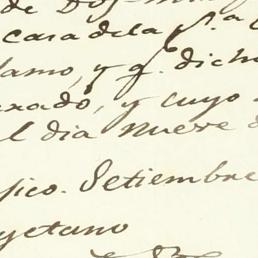 de Dos
casa de la S.ª
lamo, y q.e dicho
exado, y cuyo
l dia Nueve d
sico. Setiembre
yetano